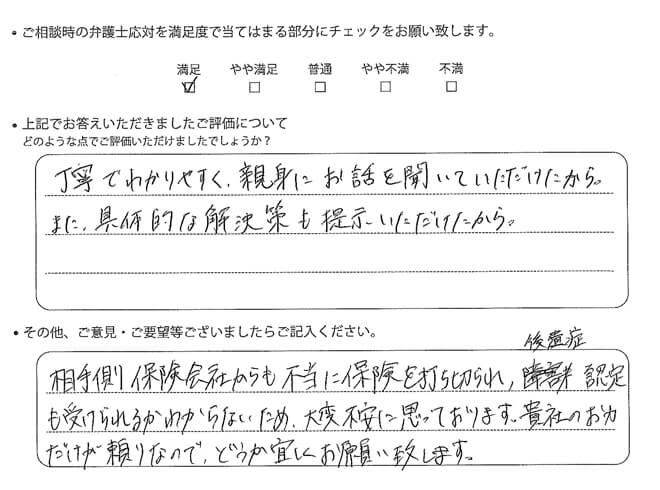 • ご相談時の弁護士応対を満足度で当てはまる部分にチェックをお願い致します。
満足 やや満足 普通 やや不満 不満
☑ □ □ □ □
• 上記でお答えいただきましたご評価について
どのような点でご評価いただけましたでしょうか？
丁寧でわかりやすく、親身にお話を聞いていただけたから。
また、具体的な解決策も提示いただけたから。
• その他、ご意見・ご要望等ございましたらご記入ください。
後遺症
相手側保険会社からも不当に保険を打ち切られ, 認定
も受けられるかわからないため、大変不安に思っております。貴社のお力
だけが頼りなので、どうか宜しくお願い致します。